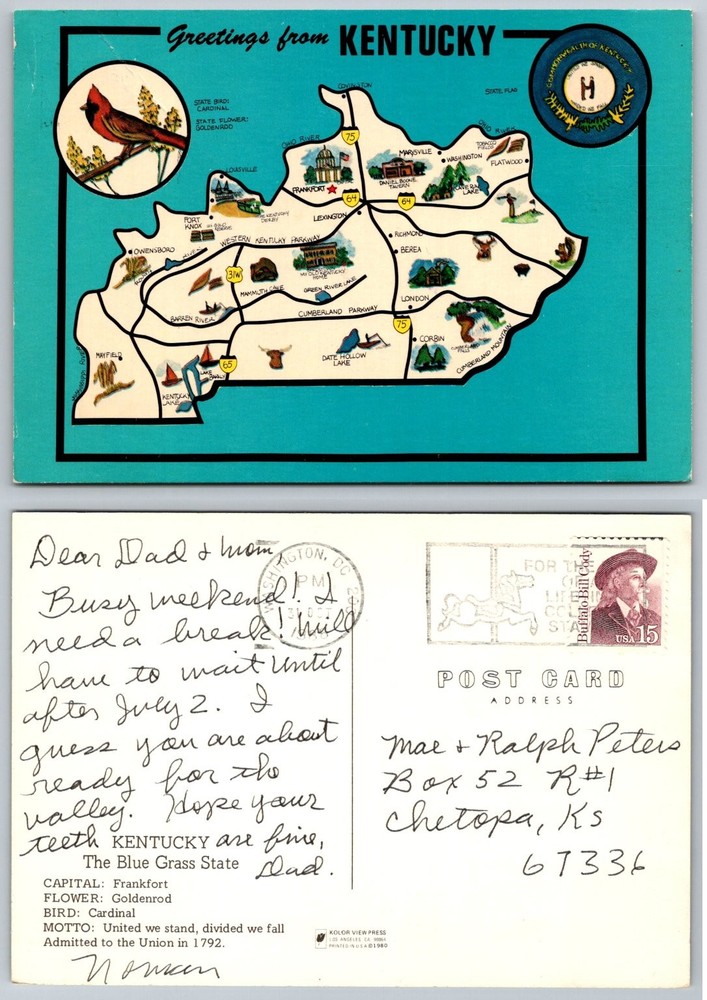 Greetings from KENTUCKY
COVINGTON
STATE BIRD:
CARDINAL
STATE FLOWER:
GOLDENROD
STATE FLAG
COMMONWEALTH OF KENTUCKY
UNITED WE STAND
DIVIDED WE FALL
OHIO RIVER
75
OHIO RIVER
TOBACCO
FIELDS
MARYSVILLE
WASHINGTON
FLATWOOD
DANIEL BOONE
TAVERN
CAVE RUN
LAKE
LOUISVILLE
FRANKFORT
64
64
FORT
KNOX
KENTUCKY
DERBY
LEXINGTON
RICHMOND
BEREA
OWENSBORO
WESTERN KENTUCKY PARKWAY
MY OLD KENTUCKY
HOME
31W
MAMMOTH CAVE
GREEN RIVER LAKE
BARREN RIVER
CUMBERLAND PARKWAY
LONDON
75
CORBIN
CUMBERLAND
FALLS
CUMBERLAND MOUNTAIN
MAYFIELD
MISSISSIPPI RIVER
KENTUCKY
LAKE
LAKE
BARKLY
65
DATE HOLLOW
LAKE
Dear Dad & Mom,
Busy weekend! I
need a break! Will
have to wait until
after July 2. I
guess you are about
ready for the
valley. Hope your
teeth are fine,
Dad.
Norman
KENTUCKY
The Blue Grass State
CAPITAL: Frankfort
FLOWER: Goldenrod
BIRD: Cardinal
MOTTO: United we stand, divided we fall
Admitted to the Union in 1792.
WASHINGTON, DC
PM
FOR THE
LIFE
STA
Buffalo Bill Cody
USA 15
POST CARD
ADDRESS
Mae & Ralph Peters
Box 52 R#1
Chetopa, Ks
67336
KOLOR VIEW PRESS
LOS ANGELES, CA
PRINTED IN U.S.A. ©1980